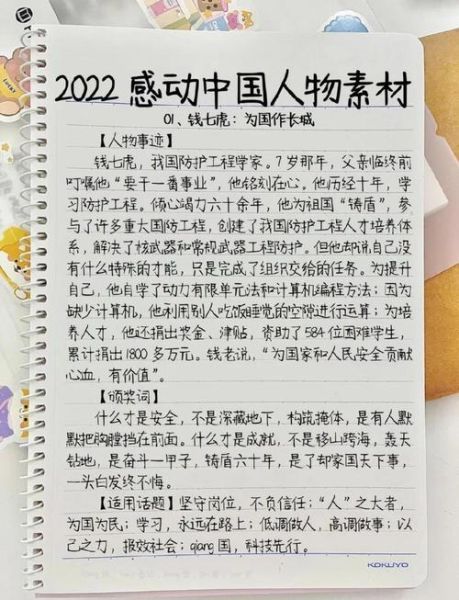 2022感动中国人物素材
01、钱七虎：为国作长城
【人物事迹】
钱七虎，我国防护工程学家。7岁那年，父亲临终前
叮嘱他“要干一番事业”，他铭刻在心。他历经十年，学
习防护工程。倾心竭力六十余年，他为祖国“铸盾”，参
与了许多重大国防工程，创建了我国防护工程人才培养体
系，解决了核武器和常规武器工程防护。但他却说自己没
有什么特殊的才能，只是完成了组织交给的任务。为提升
自己，他自学了动力有限单元法和计算机编程方法；因为
缺少计算机，他利用别人吃饭睡觉的空隙进行运算；为培
养人才，他还捐出奖金、津贴，资助了584位困难学生，
累计捐出1800多万元。钱老说，“为国家和人民安全贡献
心血，有价值”。
【颁奖词】
什么才是安全，不是深藏地下，构筑掩体，是有人默
默把胸膛挡在前面。什么才是成就，不是移山跨海，轰天
钻地，是奋斗一甲子，铸盾六十年，是了却家国天下事，
一头白发终不悔。
【适用话题】坚守岗位，不负信任；“人”之大者，
为国为民；学习，永远在路上；低调做人，高调做事；以
己之力，报效社会；qiang国，科技先行。
KOKUYO